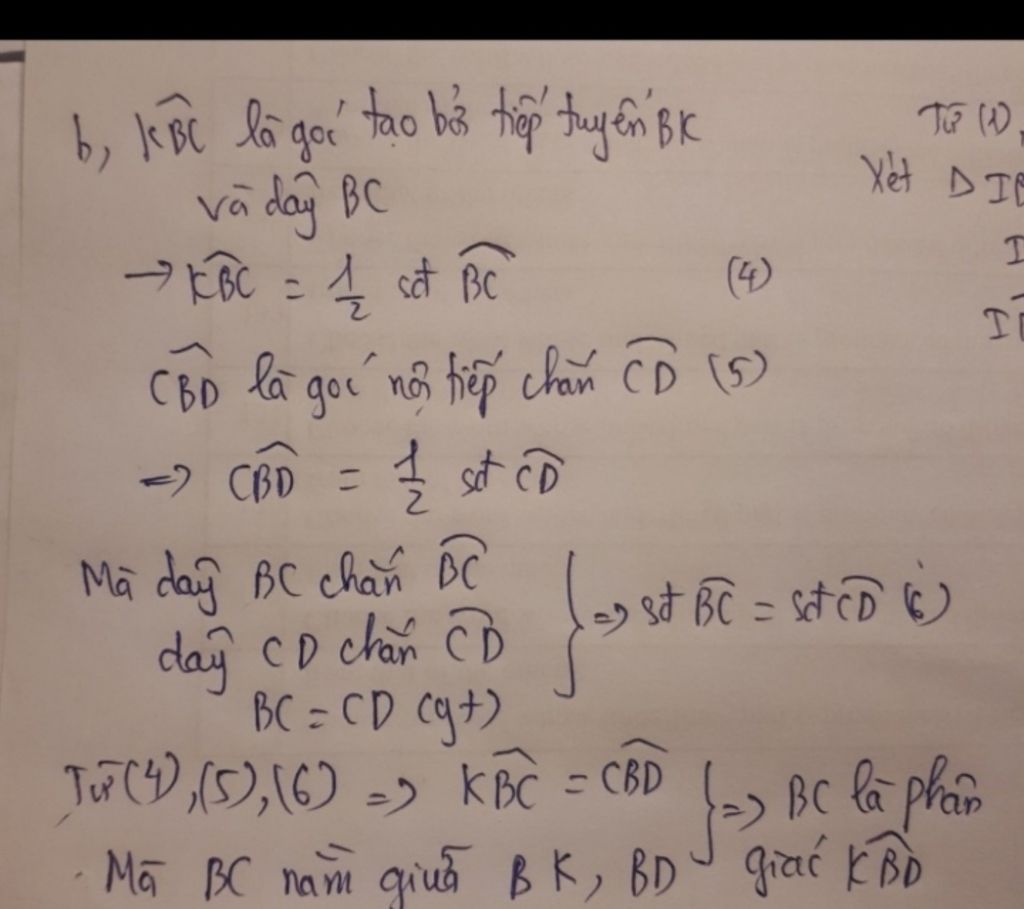 b, KBC là góc tạo bởi tiếp tuyến BK
và dây BC
→ KBC = 1/2 sđ BC (4)
CBD là góc nội tiếp chắn CD (5)
=> CBD = 1/2 sđ CD
Mà dây BC chắn BC
dây CD chắn CD
BC = CD (gt)
} => sđ BC = sđ CD (6)
Từ (4), (5), (6) => KBC = CBD
Mà BC nằm giữa BK, BD
} => BC là phân
giác KBD
Từ (1),
Xét Δ IB
I
I